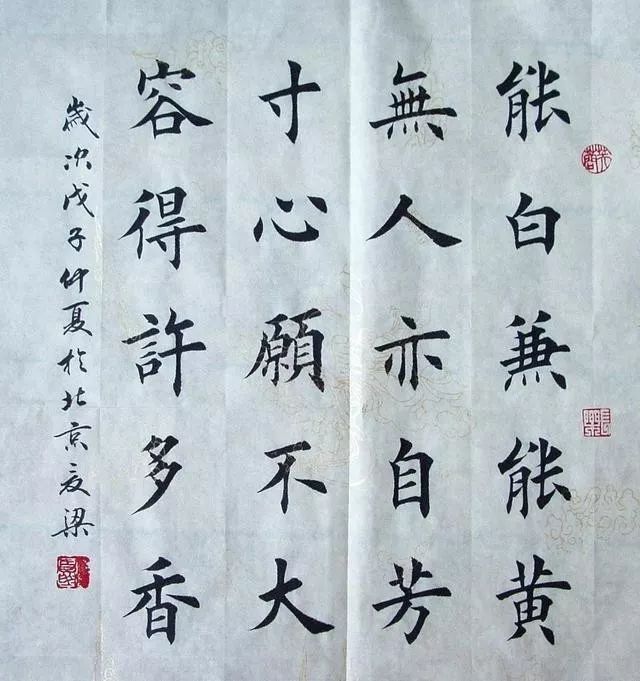 能白兼能黄
無人亦自芳
寸心願不大
容得許多香
歲次戊子仲夏於北京爰梁